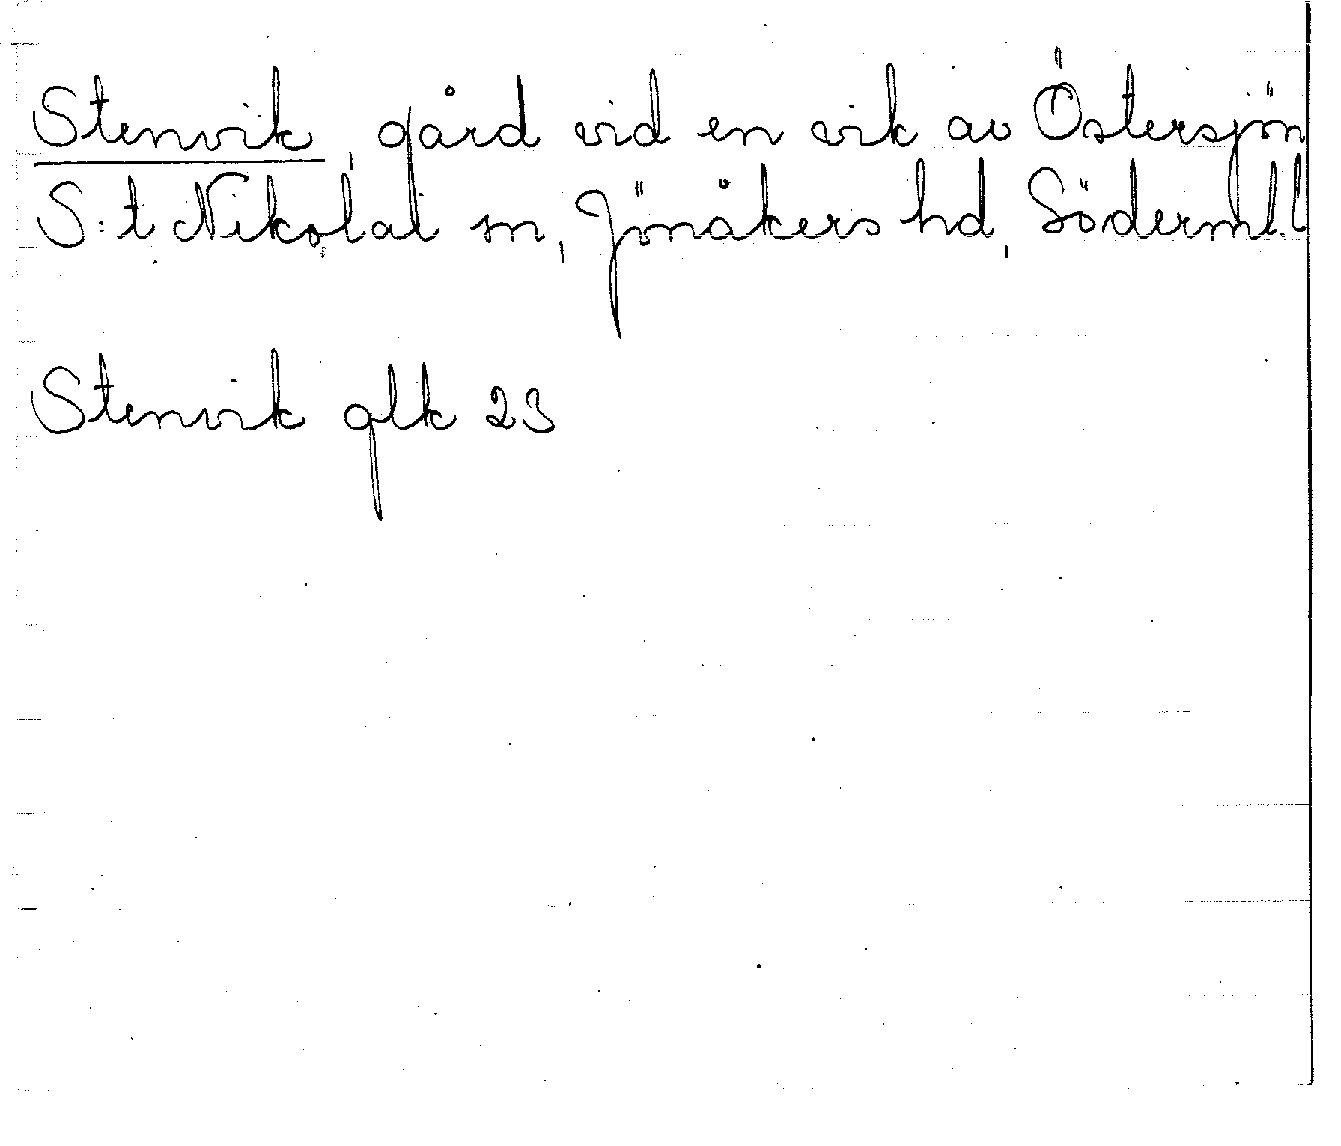 Stenvik, gård vid en vik av Östersjön
S:t Nikolai sn, Jönåkers hd, Södermll
Stenvik glk 23